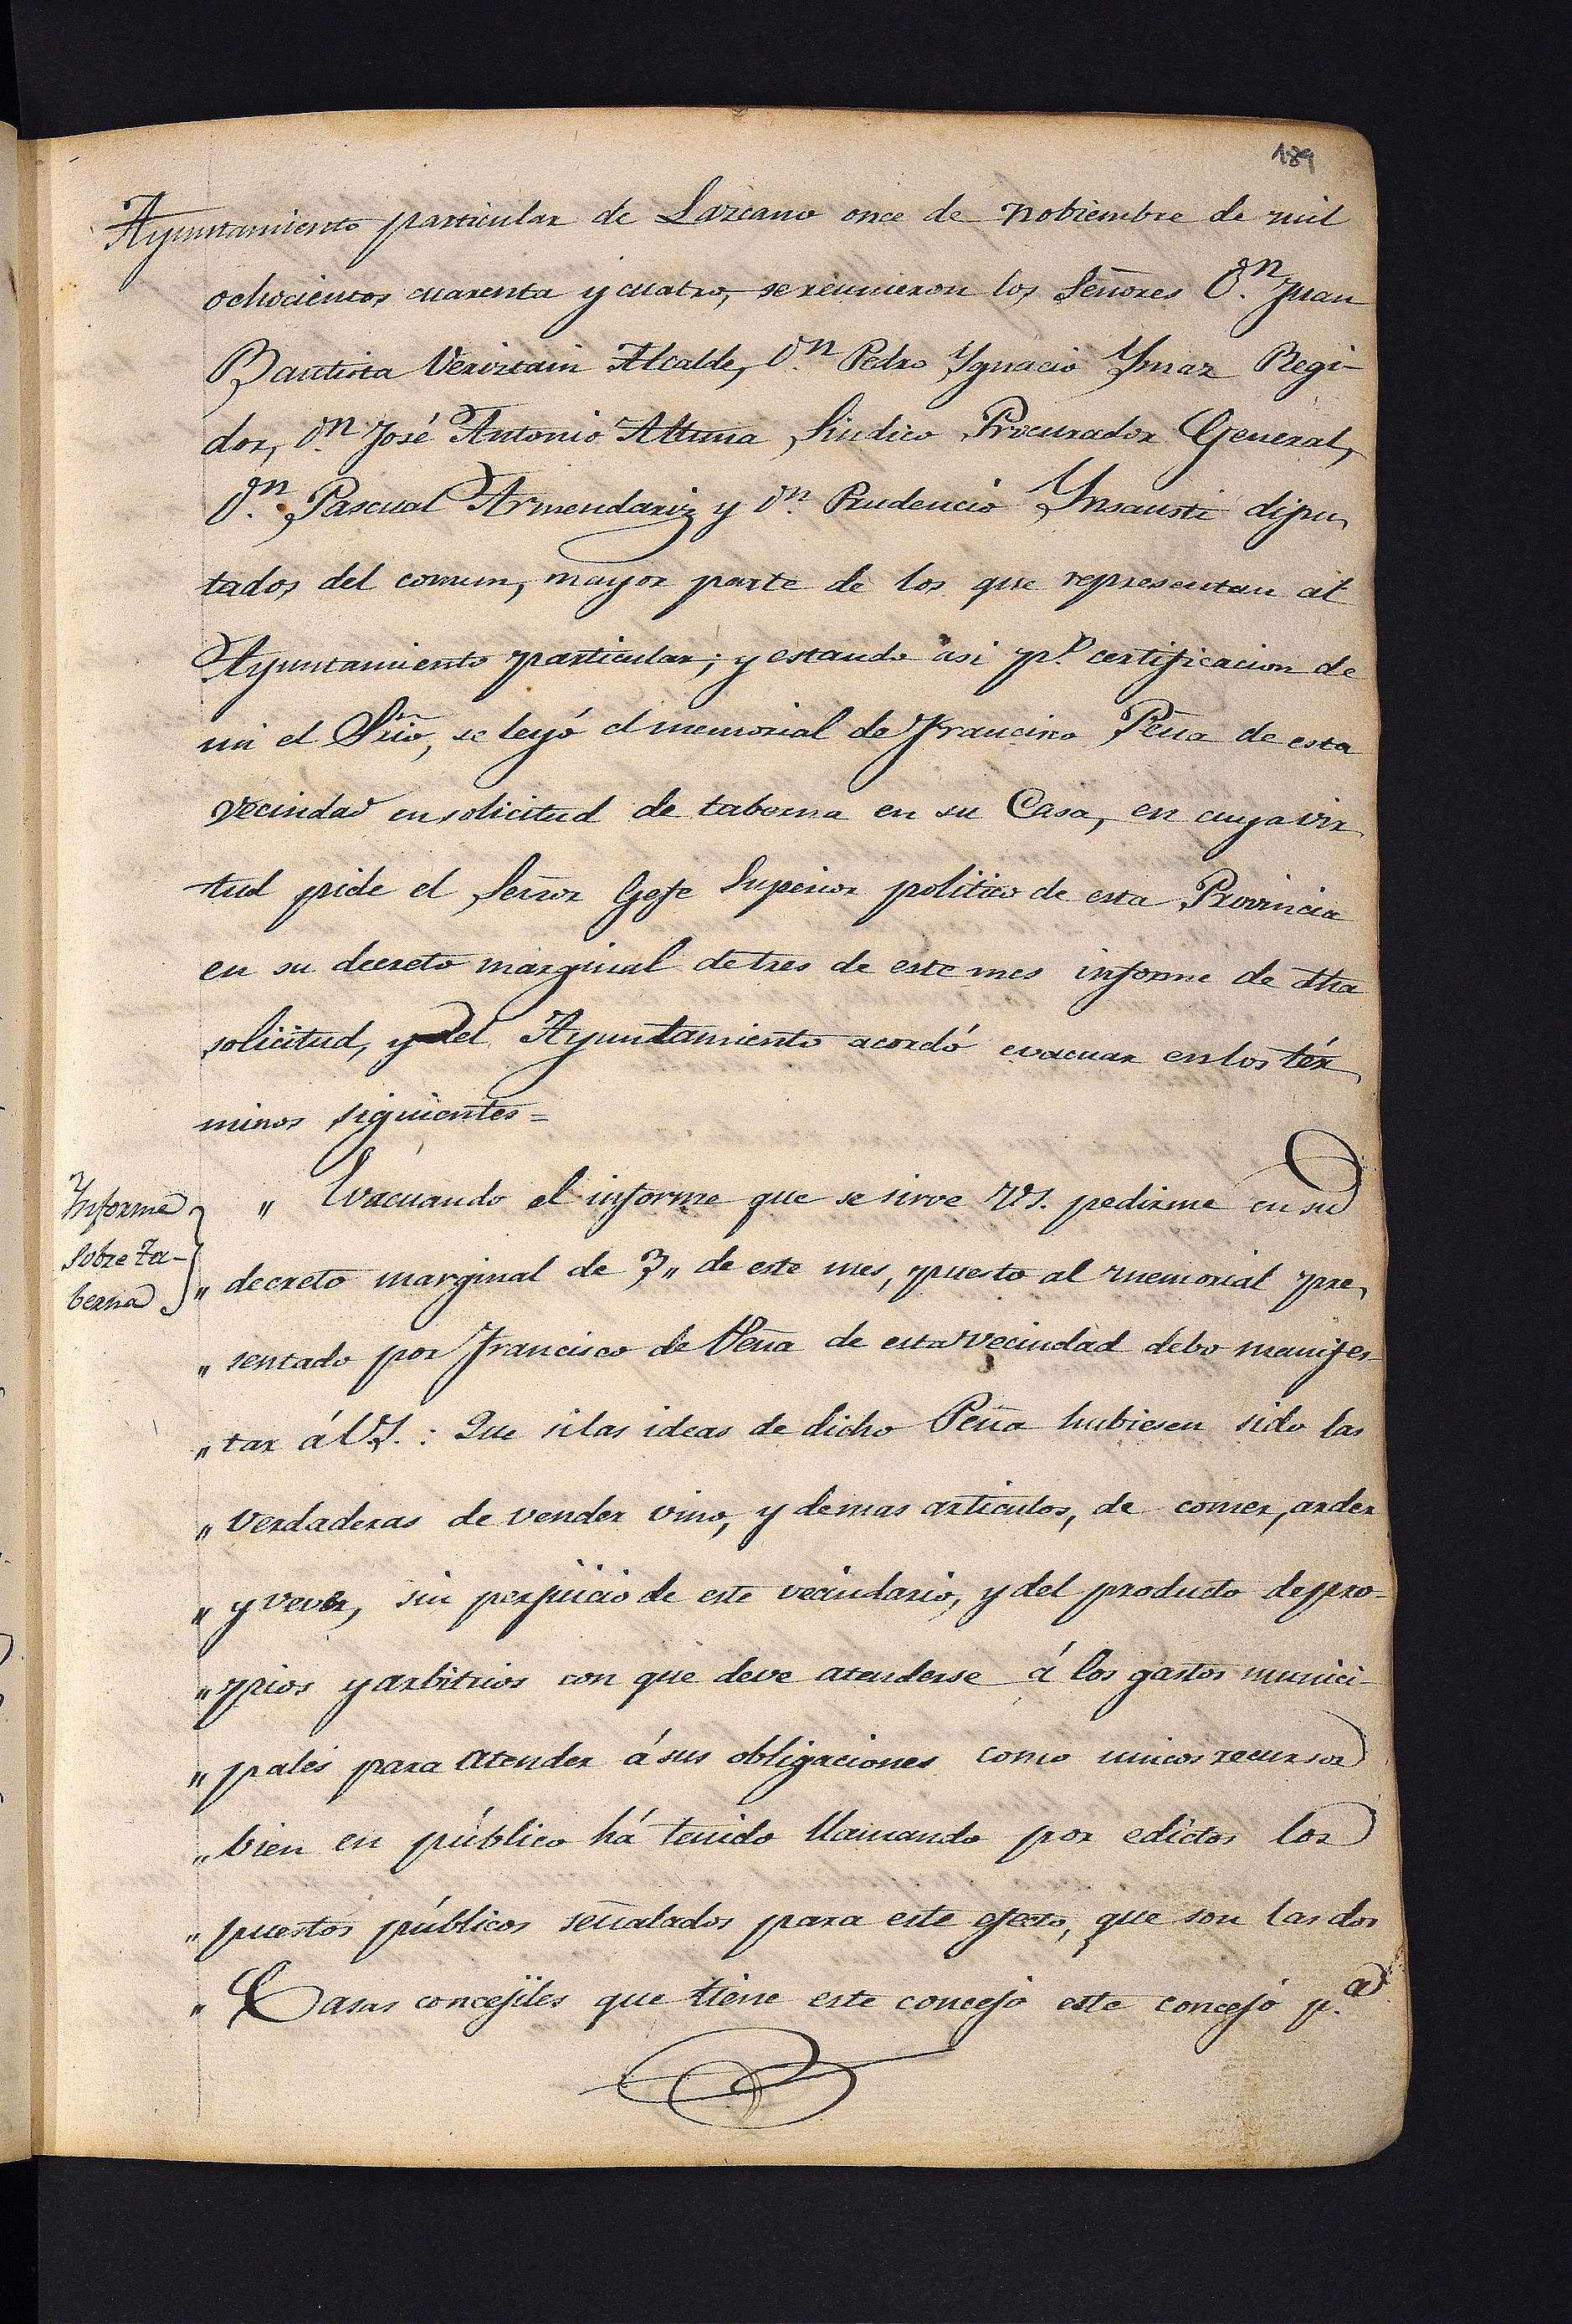 189
Ayuntamiento particular de Lazcano once de nobiembre de mil
ochocientos cuarenta y cuatro, se reunieron los Señores D.n Juan
Bautista Alcalde, D.n Pedro Ygnacio Ymaz Regi-
dor, D.n José Antonio Altuna Sindico Procurador General,
D.n Pascual Armendariz y D.n Prudencio Ynsausti dipu,
tados del comun, mayor parte de los que representan al
Ayuntamiento particular; y estando asi p.r certificacion de
mi el Srio, se leyó el memorial de Francisco Peña de esta
vecindad en solicitud de taberna en su Casa, en cuya vir,
tud pide el Señor Gefe Superior politico de esta Provincia
en su decreto marginal de tres de este mes informe de dha
solicitud, y el Ayuntamiento acordó evacuar en los tér,
minos siguientes =
Informe
sobre ta-
berna
" Evacuando el informe que se sirve VS. pedirme en su
" decreto marginal de 3,, de este mes, puesto al memorial pre,
" sentado por Francisco de Peña de esta vecindad debo manifes-
" tar á V.S.: Que si las ideas de dicho Peña hubiesen sido las
" verdaderas de vender vino, y demas articulos, de comer, arder
" y vever, sin perjuicio de este vecindario, y del producto de pro-
" pios y arbitrios con que deve atenderse á los gastos munici-
" pales para atender á sus obligaciones como unicos recursos
" bien en público há tenido llamando por edictos los
" puestos públicos señalados para este efecto, que son las dos
" Casas concejiles que tiene este concejo este concejo p.a